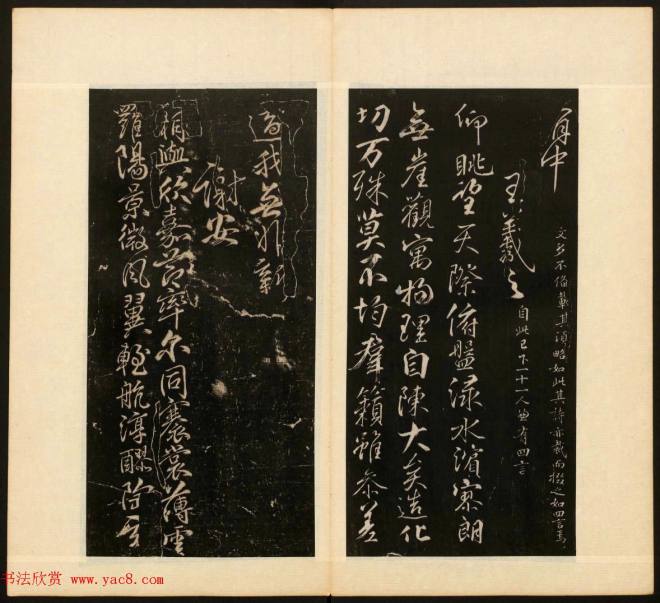 文多不俻載其略如此其詩亦裁而掇之如四言焉
王羲之 自此已下十一人並有四言
仰眺望天際俯盤渌水濱寥朗
無崖觀寓物理自陳大矣造化
功万殊莫不均羣籟雖叅差
適我無非新
謝安
相與欣嘉節率尔同褰裳薄雲
羅陽景微風翼輕航淳醪陶
书法欣赏 www.yac8.com